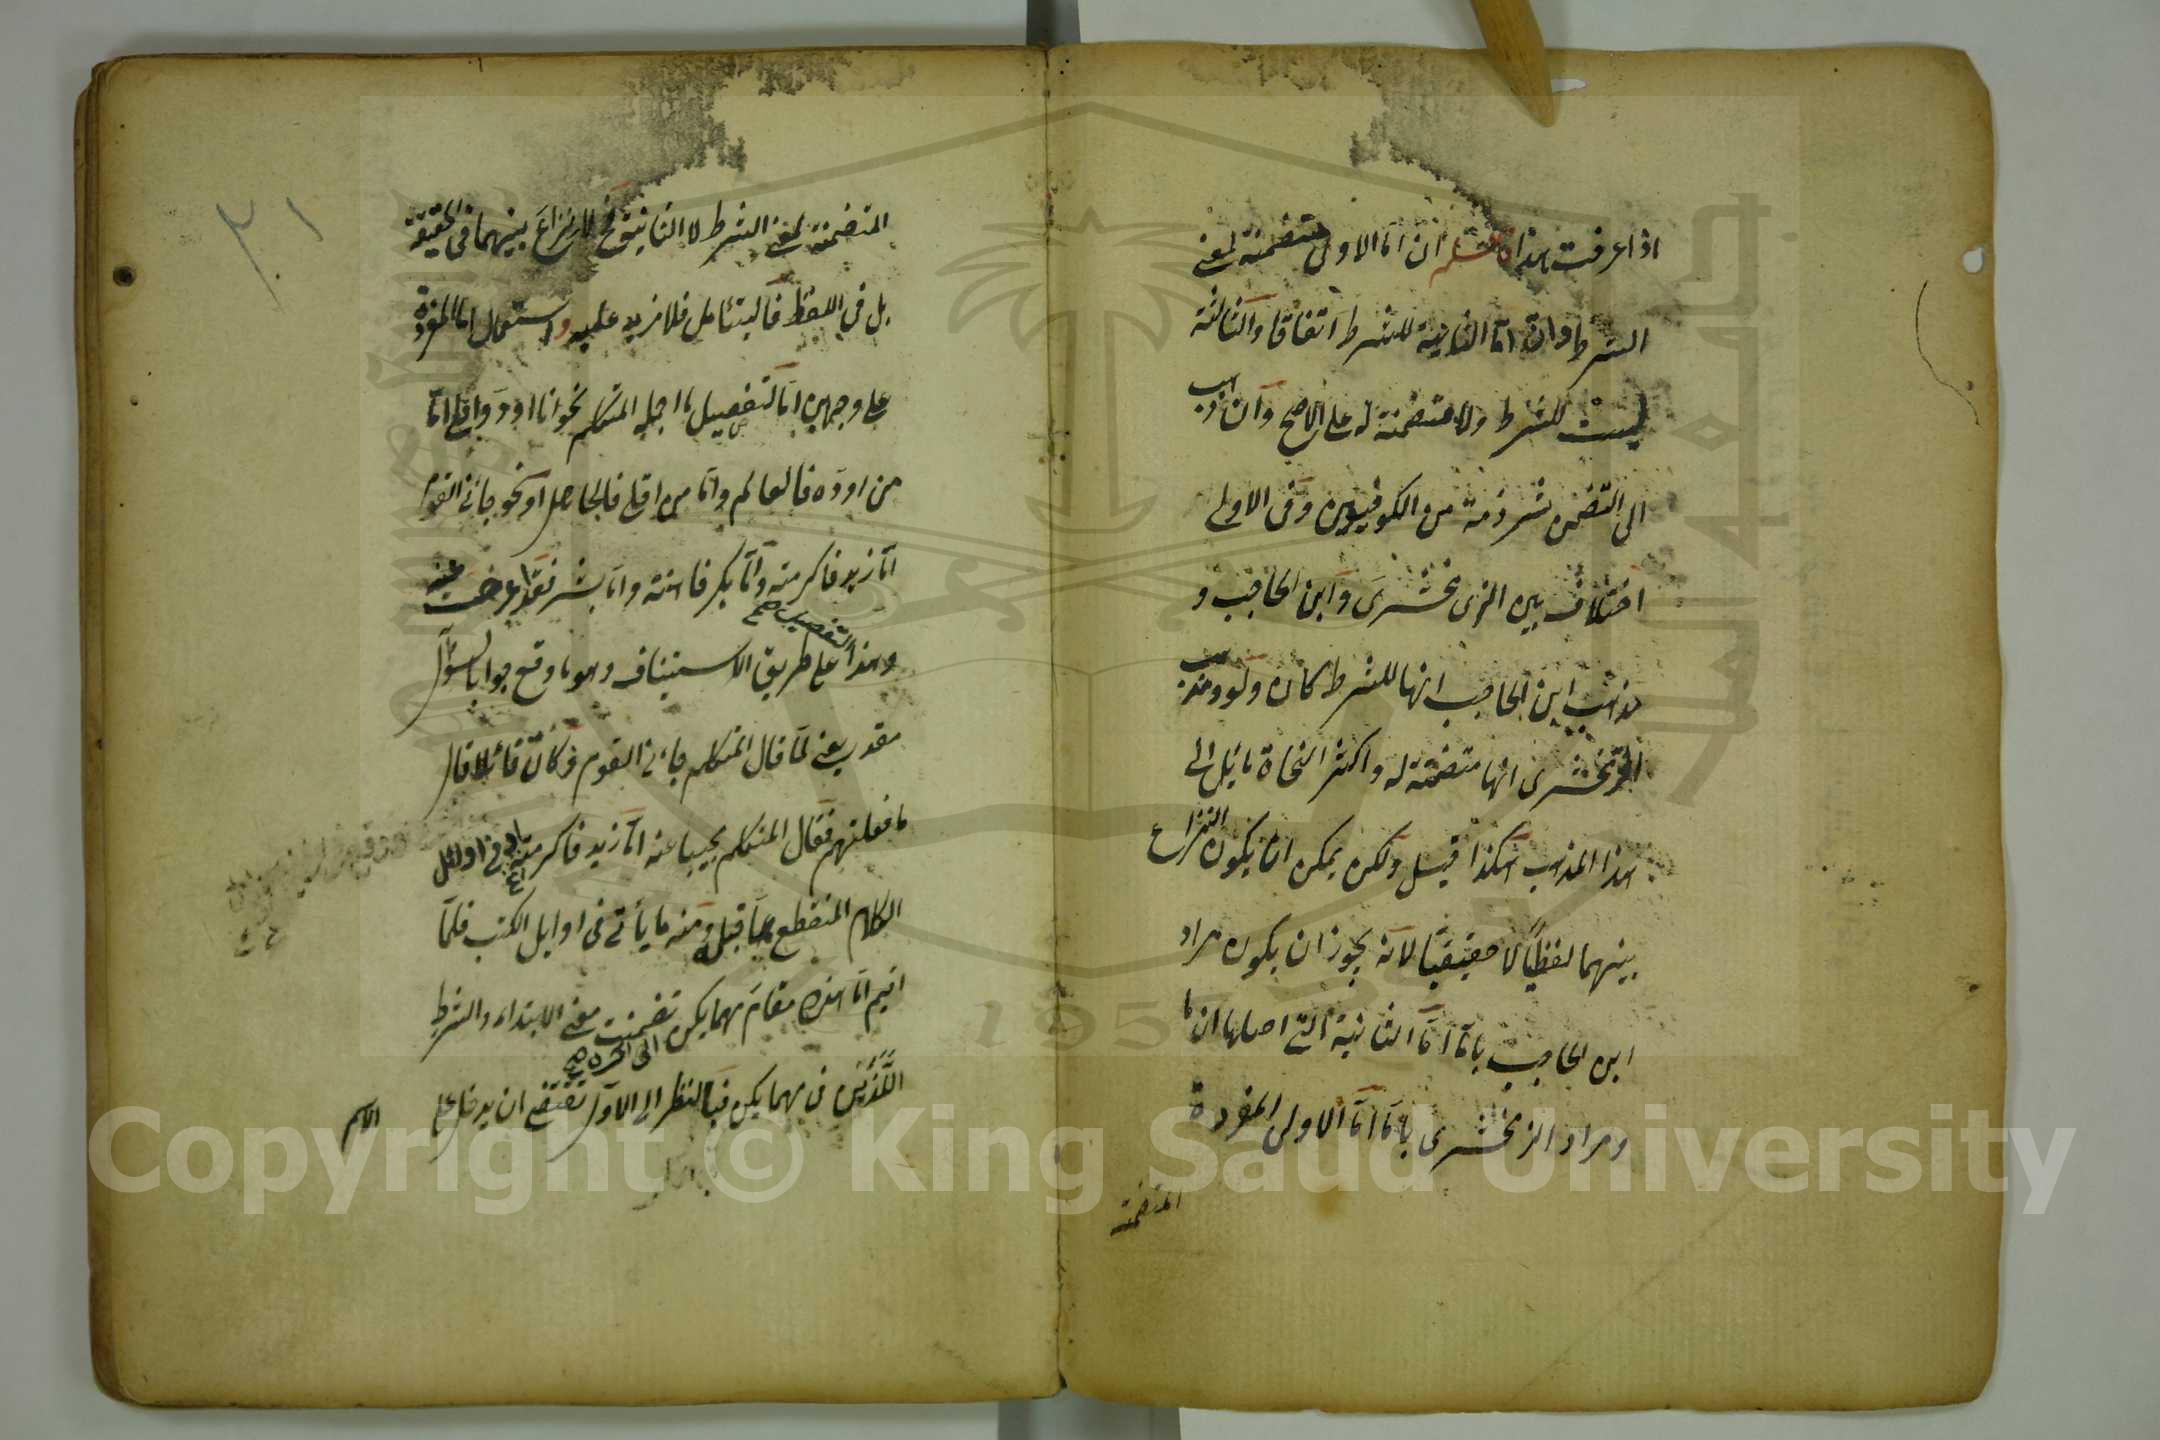 اذا عرفت هذا فاعلم ان اما الاولى متضمنة لمعنى
الشرط وان اما الثانية للشرط اتفاقا والثالثة
ليست للشرط ولا متضمنة له على الاصح وان ذهب
الى التضمن شرذمة من الكوفيين وفى الاولى
اختلاف بين الزمخشرى وابن الحاجب و
مذهب ابن الحاجب انها للشرط كان ولو ومذهب
الزمخشرى انها متضمنة له واكثر النحاة مائل الى
هذا المذهب هكذا قيل ولكن يمكن ان يكون النزاع
بينهما لفظيا لا حقيقيا لانه يجوز ان يكون مراد
ابن الحاجب باما اما الثانية التى اصلها ان ما
ومراد الزمخشرى باما اما الاولى المفردة
المتضمنة
المتضمنة لمعنى الشرط لا الثانية فح لا نزاع بينهما فى الحقيقة
بل فى اللفظ فاليتأمل فلا مزيد عليه واستعمال اما المفردة
على وجهين اما لتفصيل ما اجمله المتكلم نحو انا اود واقلى اما
من اوده فالعالم واما من اقلى فالجاهل او نحو جائنى القوم
اما زيد فاكرمته واما بكر فاهنته واما بشر فقد اعرضت عنه
وهذا التفصيل صح على طريق الاستيناف وهو ما وقع جوابا لسؤال
مقدر يعنى لما قال المتكلم جائنى القوم فكان قائلا قال
ما فعلت بهم فقال المتكلم مجيبا عنه اما زيد فاكرمته او فى اوائل
الكلام المنقطع عما قبله ومنه ما يأتى فى اوايل الكتب فلما
اقيم اما هذه مقام مهما يكن تضمنت معنى الابتداء والشرط
اللذين فى مهما يكن الى اخره صح فبالنظر الى الاول تقتضى ان يدخل على
الاسم
٢١
Copyright © King Saud University
1957